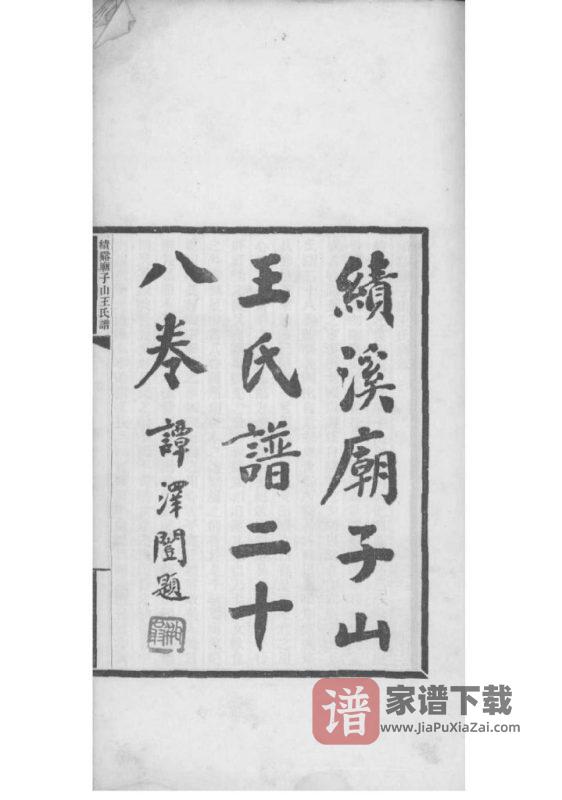 績溪廟子山
王氏譜二十
八卷 譚澤闓題
績谿廟子山王氏譜
谱 家谱下载
www.JiaPuXiaZai.com